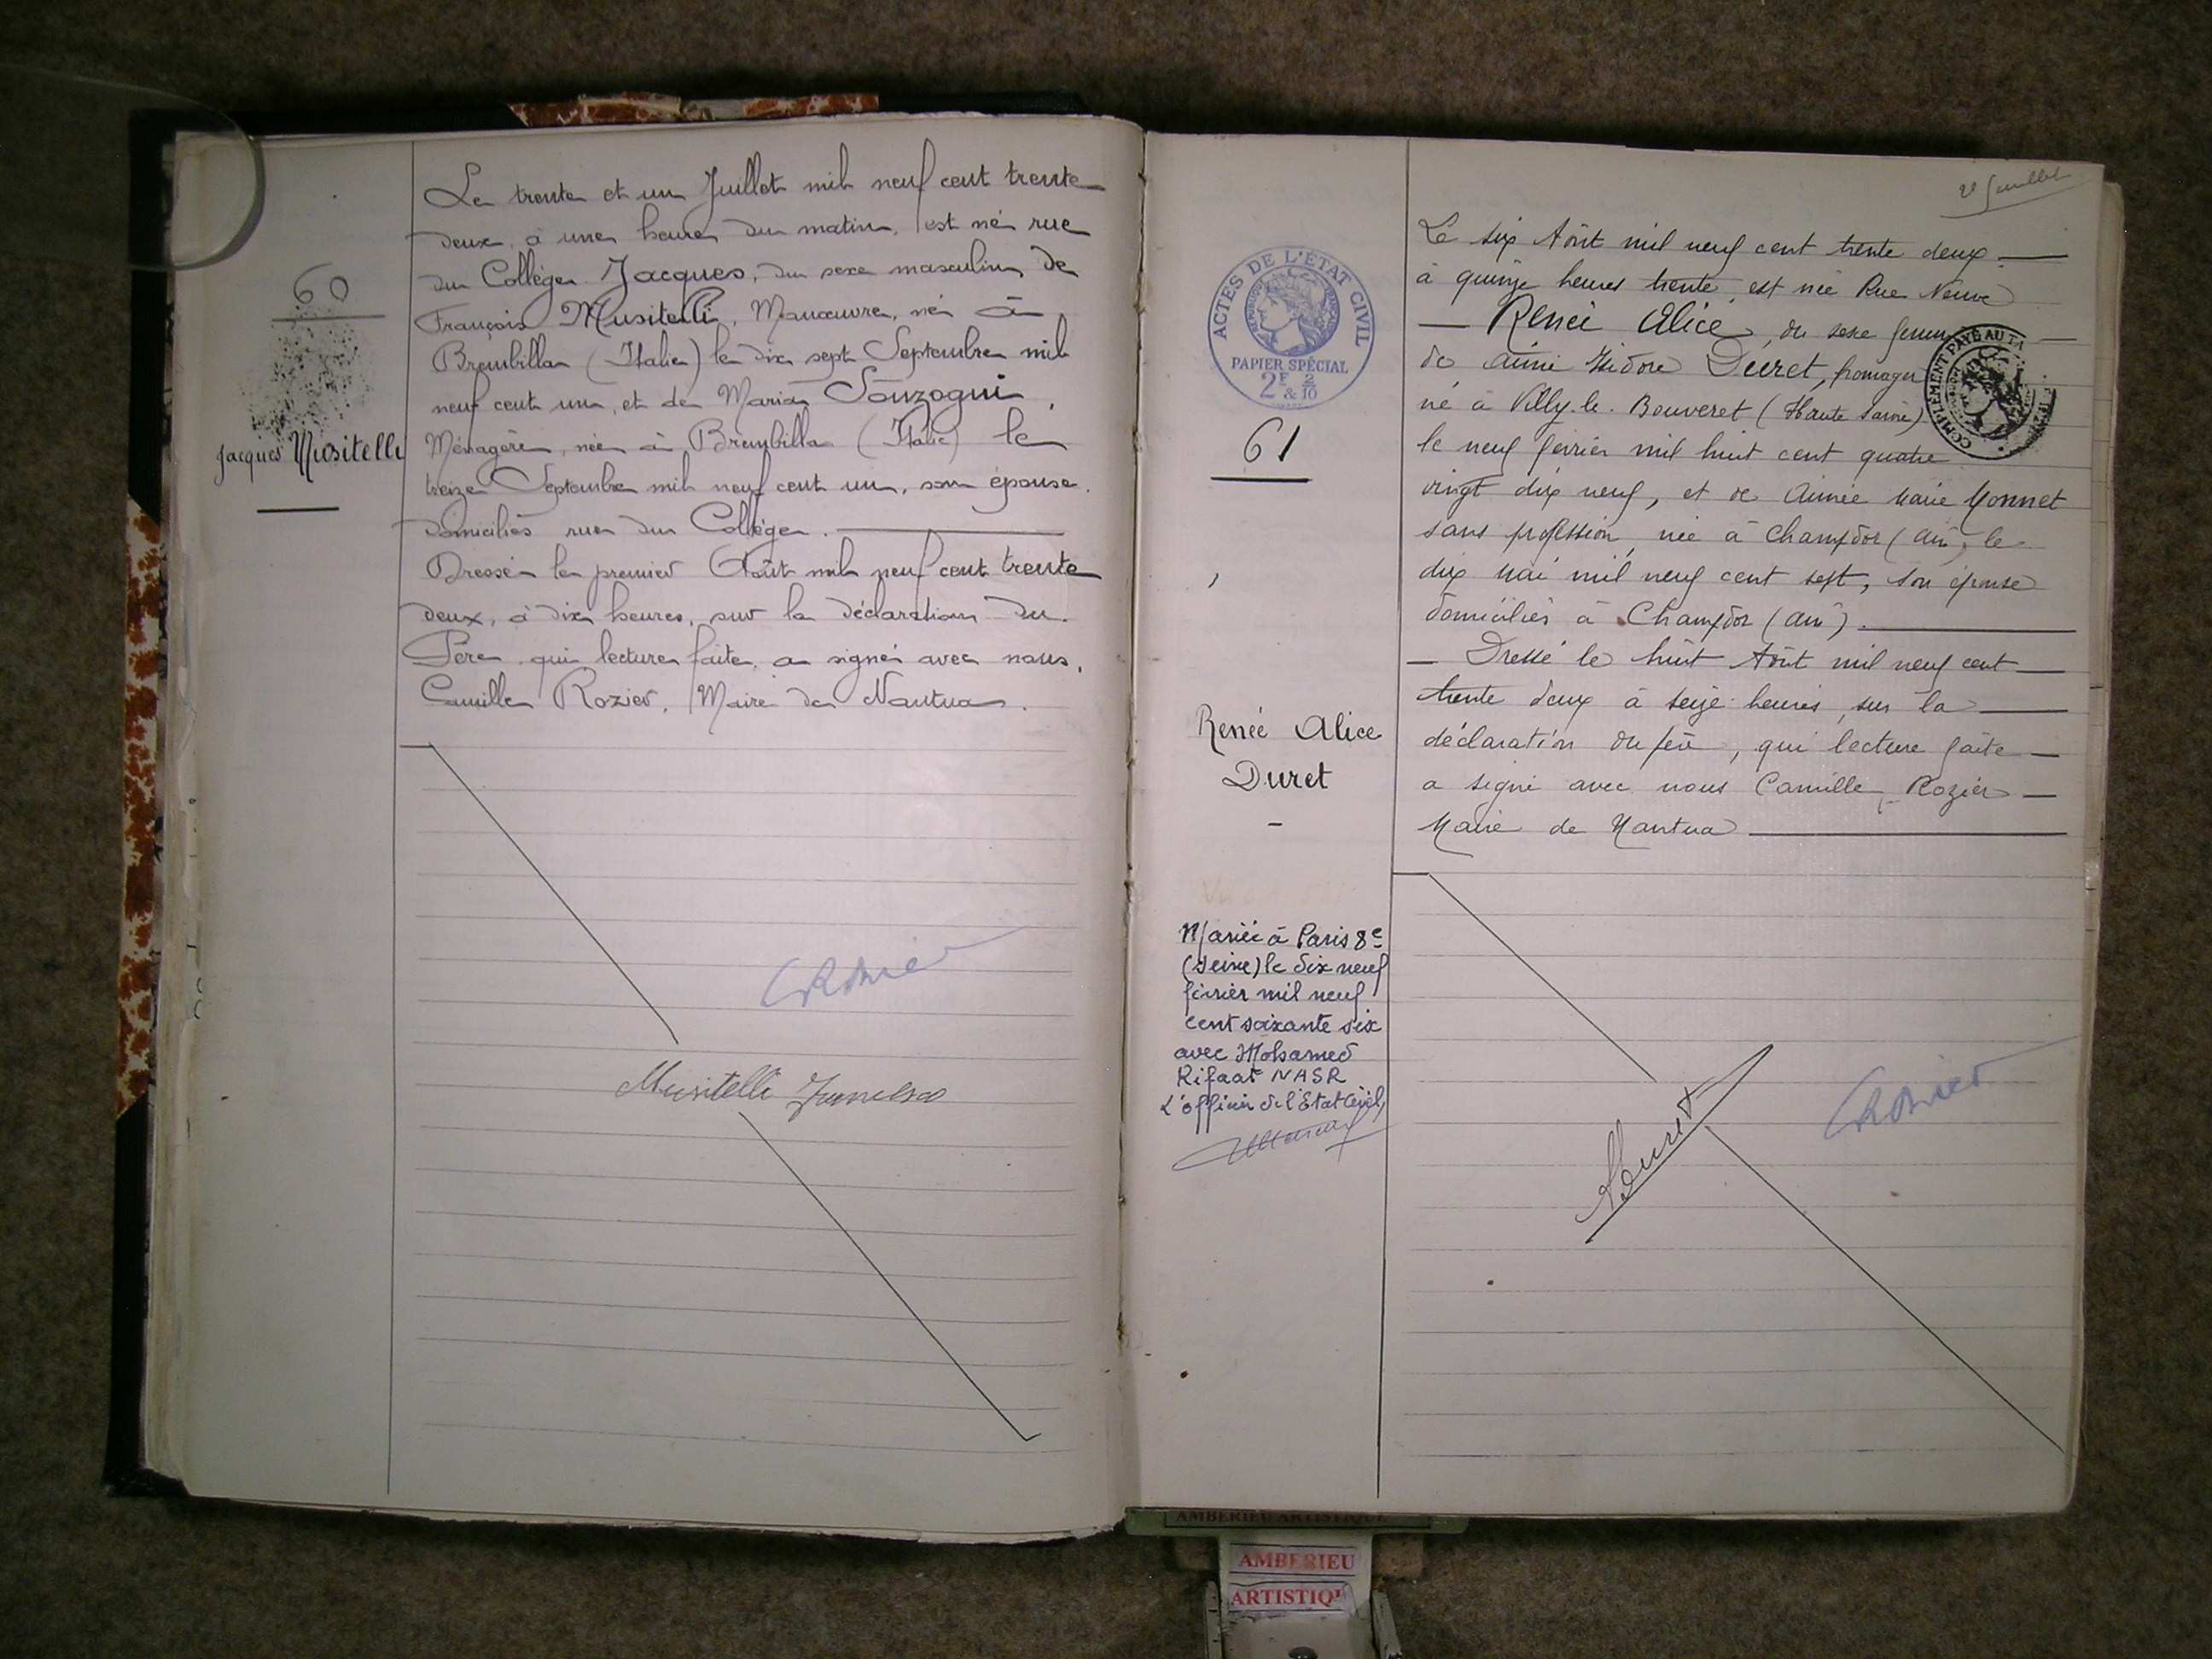 60
Jacques Musitelli
Le trente et un Juillet mil neuf cent trente
deux, à une heure du matin, est né rue
du Collège Jacques, du sexe masculin, de
François Musitelli, Manœuvre, né à
Brembilla (Italie) le dix sept Septembre mil
neuf cent un, et de Maria Sonzogni,
Ménagère, née à Brembilla (Italie) le
treize Septembre mil neuf cent un, son épouse.
domiciliés rue du Collège.
Dressé le premier Août mil neuf cent trente
deux, à dix heures, sur la déclaration du
Père, qui lecture faite, a signé avec nous,
Camille Rozier, Maire de Nantua.
CRozier
Musitelli Francesco
ACTES DE L'ÉTAT CIVIL
PAPIER SPÉCIAL
2F & 2/10
61
Renée Alice
Duret
Mariée à Paris 8e
(Seine) le dix neuf
février mil neuf
cent soixante six
avec Mohamed
Rifaat NASR
L'officier de l'Etat Civil,
Juillet
Le six Août mil neuf cent trente deux
à quinze heures trente, est née Rue Neuve
Renée Alice, du sexe fémin
de Aimé Isidore Duret, fromager
né à Villy-le-Bouveret (Haute Savoie)
le neuf février mil huit cent quatre
vingt dix neuf, et de Aimée Marie Monnet
sans profession, née à Champdor (Ain), le
dix mai mil neuf cent sept, son épouse
domiciliés à Champdor (Ain).
Dressé le huit Août mil neuf cent
trente deux à seize heures, sur la
déclaration du père, qui lecture faite
a signé avec nous Camille Rozier
Maire de Nantua
COMPLÉMENT PAYÉ AU TA
ADuret
CRozier
AMBERIEU ARTISTIQUE
AMBERIEU
ARTISTIQU